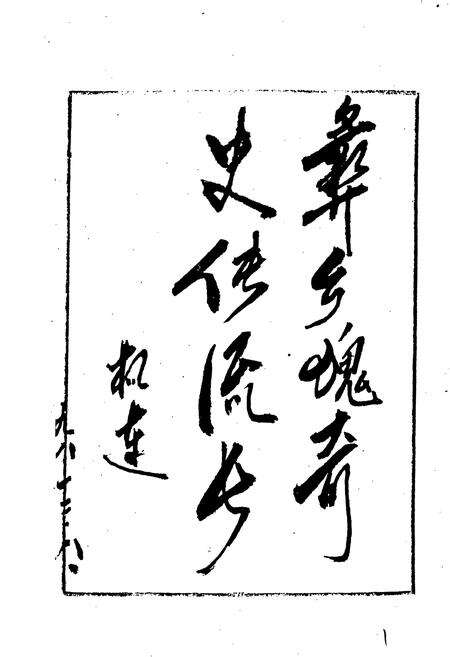 彝乡瑰奇
史传流长
九六.十二.八
1